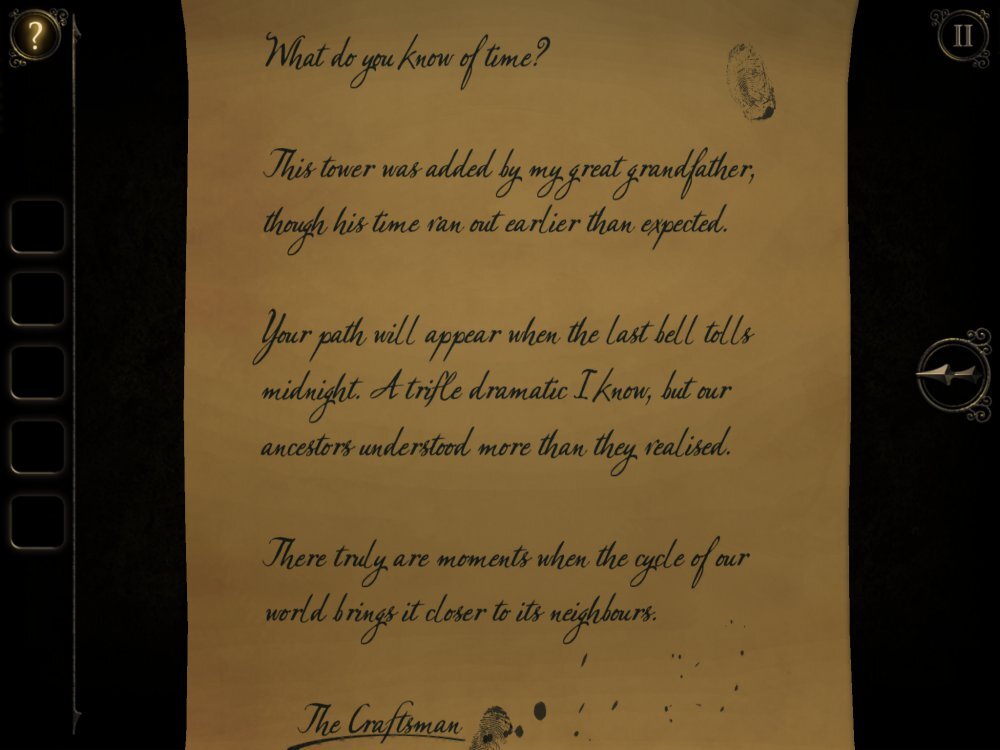 What do you know of time?
This tower was added by my great grandfather,
though his time ran out earlier than expected.
Your path will appear when the last bell tolls
midnight. A trifle dramatic I know, but our
ancestors understood more than they realised.
There truly are moments when the cycle of our
world brings it closer to its neighbours.
The Craftsman
?